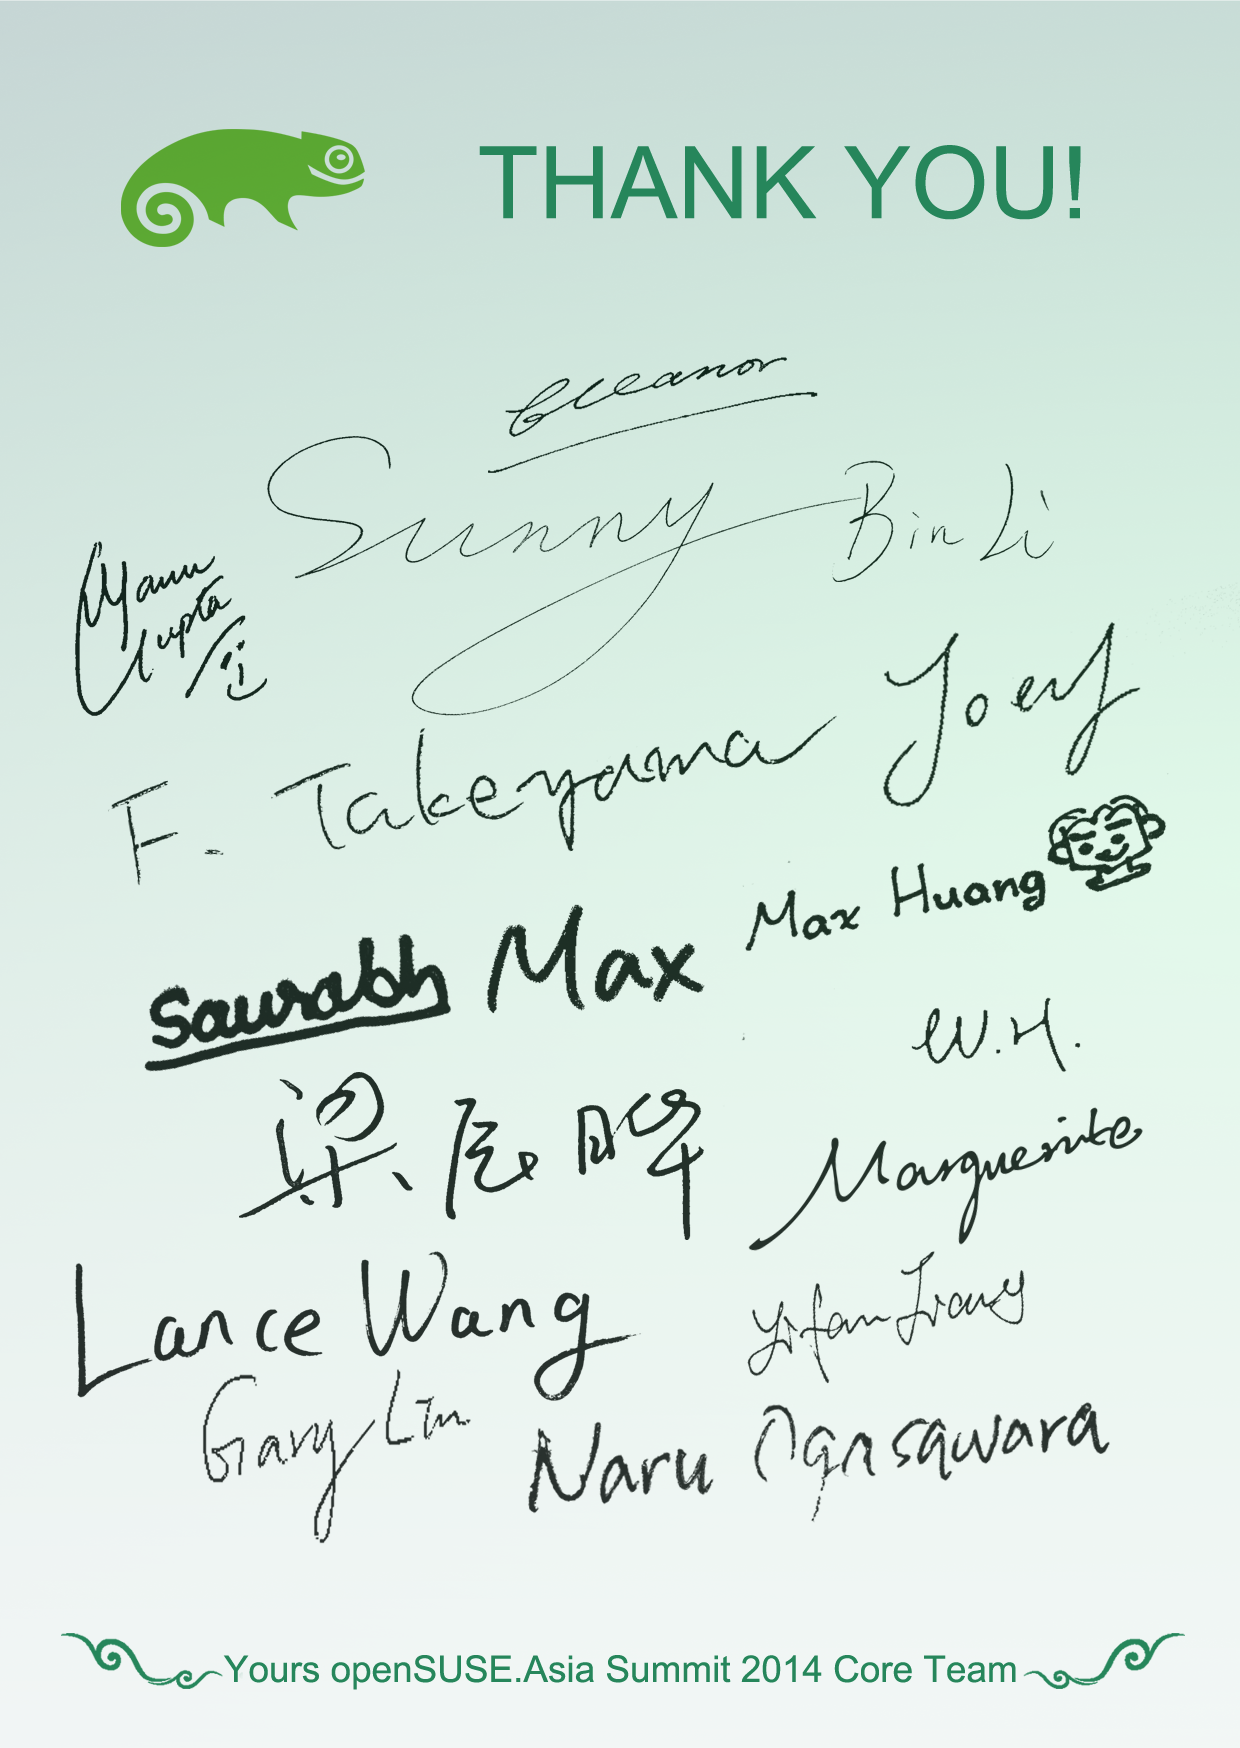 THANK YOU!
Eleanor
Sunny
Bin Li
Manu
Gupta
Joey
F. Takeyama
Max Huang
Saurabh
Max
W.H.
梁辰晔
Marguerite
Lance Wang
Yifan Jiang
Gary Lin
Naru Ogasawara
Yours openSUSE.Asia Summit 2014 Core Team